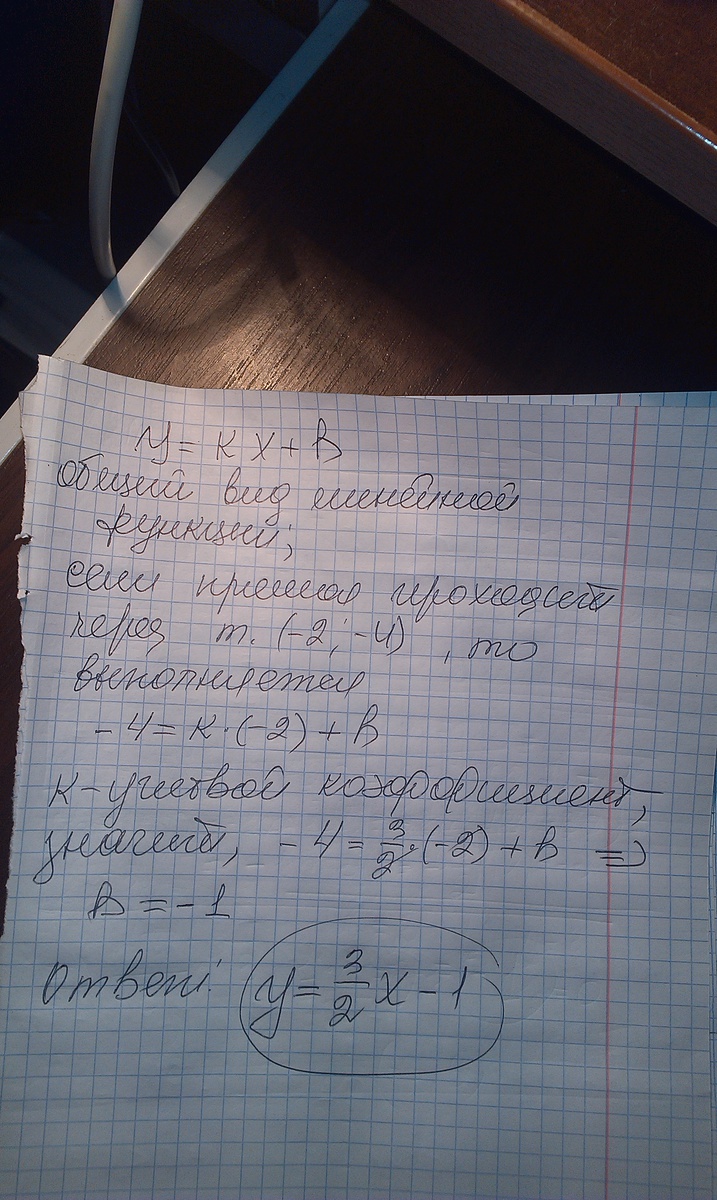 y = kx + b
общий вид линейной
функции;
если прямая проходит
через т. (-2; -4), то
выполняется
-4 = k·(-2) + b
k - угловой коэффициент,
значит, -4 = 3/2·(-2) + b =>
b = -1
Ответ: y = 3/2 x - 1